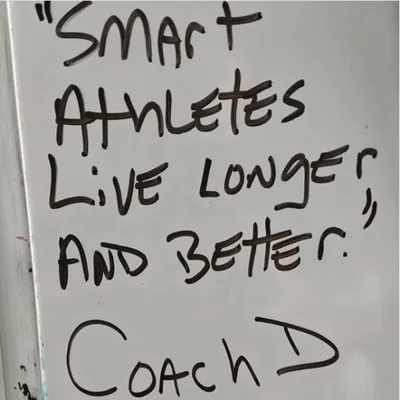 "Smart
Athletes
Live Longer
And Better."
Coach D